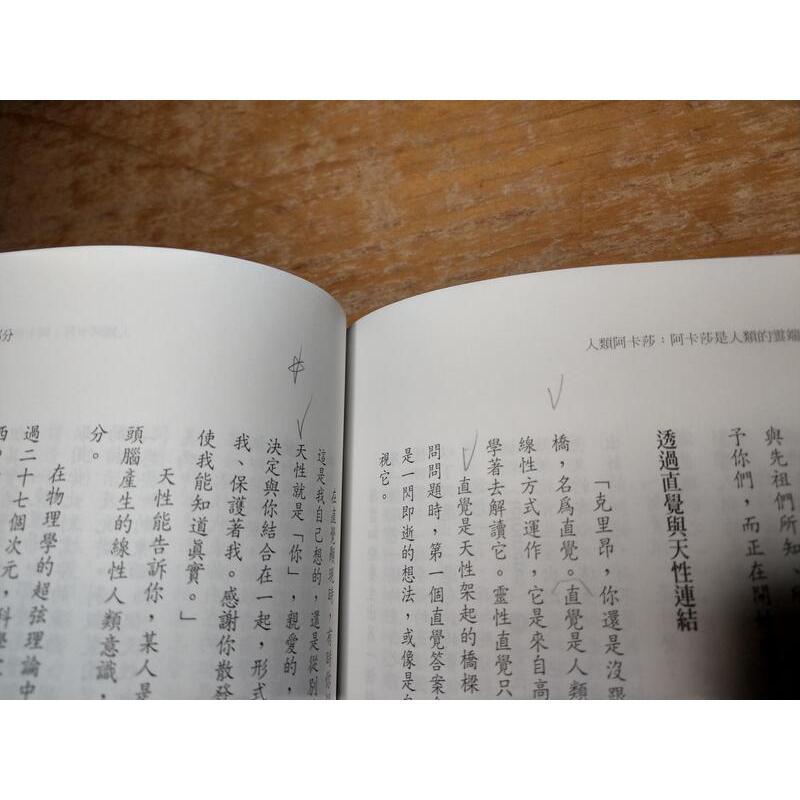 人類阿卡莎：阿卡莎是人類的雲端
與先祖們所知、
予你們，而正在開
透過直覺與天性連結
「克里昂，你還是沒跟
橋，名爲直覺。直覺是人類
線性方式運作，它是來自高
學著去解讀它。靈性直覺只
直覺是天性架起的橋樑
問問題時，第一個直覺答案
是一閃即逝的想法，或像是
視它。
分
在直覺顯現時，有時你
這是我自己想的，還是從別
天性就是「你」，親愛的，
決定與你結合在一起，形式
我、保護著我。感謝你散發
使我能知道眞實。」
天性能告訴你，某人是
頭腦產生的線性人類意識，
分。
在物理學的超弦理論中
過二十七個次元，科學
西。